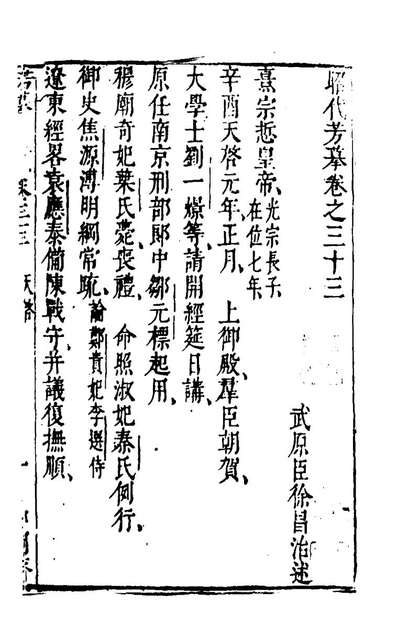 昭代芳摹卷之三十三
武原臣徐昌治述
熹宗悊皇帝光宗長子在位七年
辛酉天啓元年正月上御殿羣臣朝賀
大學士劉一燝等請開經筵日講
原任南京刑部郎中鄒元標起用
穆廟奇妃葉氏薨喪禮命照淑妃秦氏例行
御史焦源溥明綱常疏論鄭貴妃李選侍
遼東經畧袁應泰備陳戰守并議復撫順
卷三十三天啓